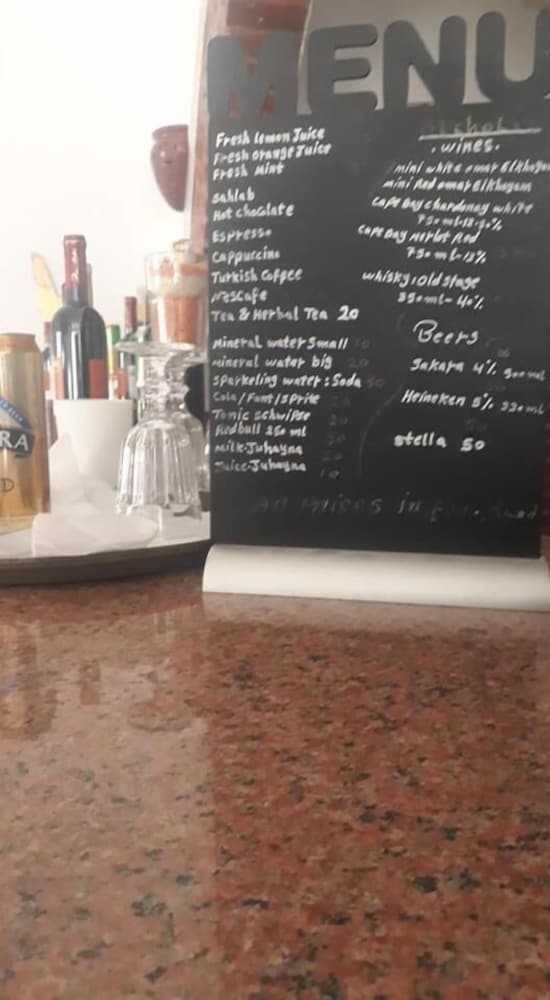 MENU
Fresh Lemon Juice
Fresh orange Juice
Fresh Mint
Sahlab
Hot chocolate
Espresso
Cappuccino
Turkish Coffee
Nescafe
Tea & Herbal Tea 20
Mineral water Small
Mineral water big 20
Sparkeling water: Soda 50
Cola/Fant/Sprite
Tonic schwipse
Redbull 250 ml
Milk-Juhayna
Juice-Juhayna 10
.wines.
mini white omar Elkhayam
mini Red omar Elkhayam
Cape Bay chardonay white
750ml-12.50%
Cape Bay Merlot Red
750ml-13%
whisky:old stage
350ml-40%
Beers
Sakara 4% 500ml
Heineken 5% 330ml
50
stella 50
All Prices in
RA